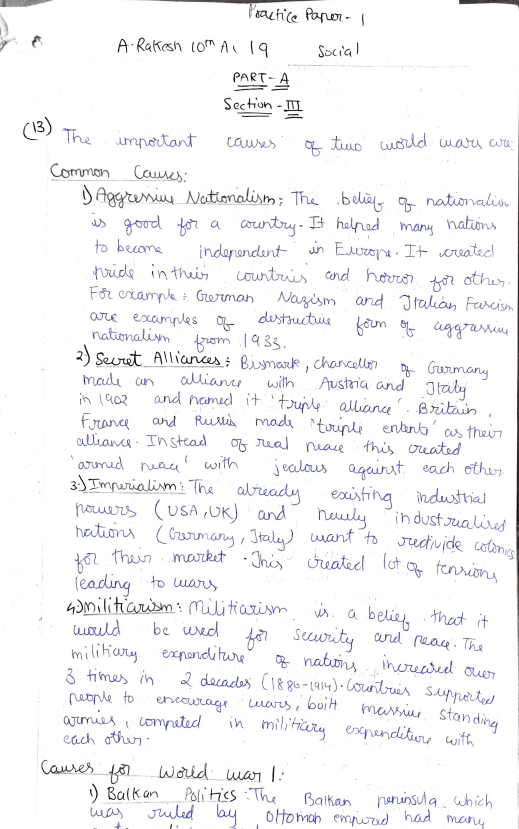 Practice Paper - 1
A. Rakesh 10th A1 19 Social
PART - A
Section - III
(13) The important causes of two world wars are:
Common Causes:
1) Aggressive Nationalism: The belief of nationalism
is good for a country. It helped many nations
to become independent in Europe. It created
pride in their countries and horror for other.
For example: German Nazism and Italian Fascism
are examples of destructive form of aggrassive
nationalism from 1933.
2) Secret Alliances: Bismark, chancellor of Germany
made an alliance with Austria and Italy
in 1902 and named it 'triple alliance'. Britain,
France and Russia made 'triple entente' as their
alliance. Instead of real peace this created
'armed peace' with jealous against each other
3.) Imperialism: The already existing industrial
powers (USA, UK) and newly industrialised
nations (Germany, Italy) want to redivide colonies
for their market. This created lot of tensions
leading to wars
4) Militiarism: Militiarism is a belief that it
would be used for security and peace. The
militiary expenditure of nations increased over
3 times in 2 decades (1886-1914). Countries supported
people to encourage wars, boilt massive standing
armies, competed in militiary expenditure with
each other.
Causes for World war 1:
1) Balkan Politics: The Balkan peninsula, which
was ruled by Ottomoh empired had many